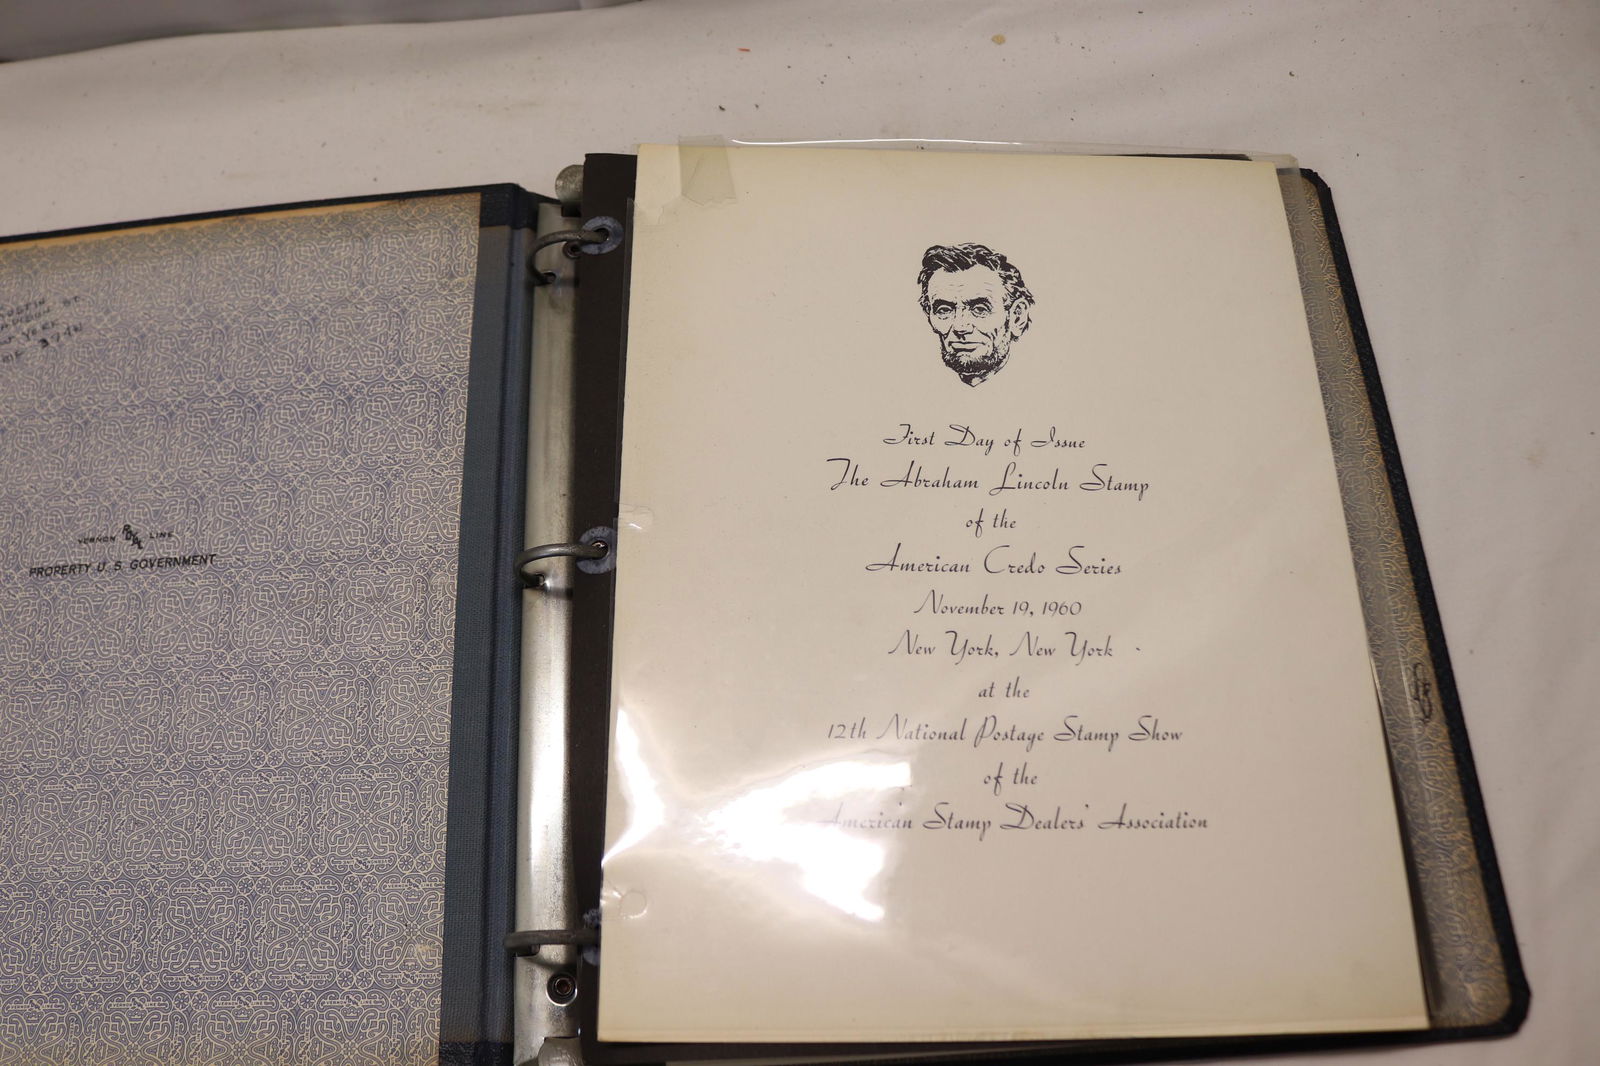 YORK
VERNON ROYAL LINE
PROPERTY U. S. GOVERNMENT
First Day of Issue
The Abraham Lincoln Stamp
of the
American Credo Series
November 19, 1960
New York, New York
at the
12th National Postage Stamp Show
of the
American Stamp Dealers' Association